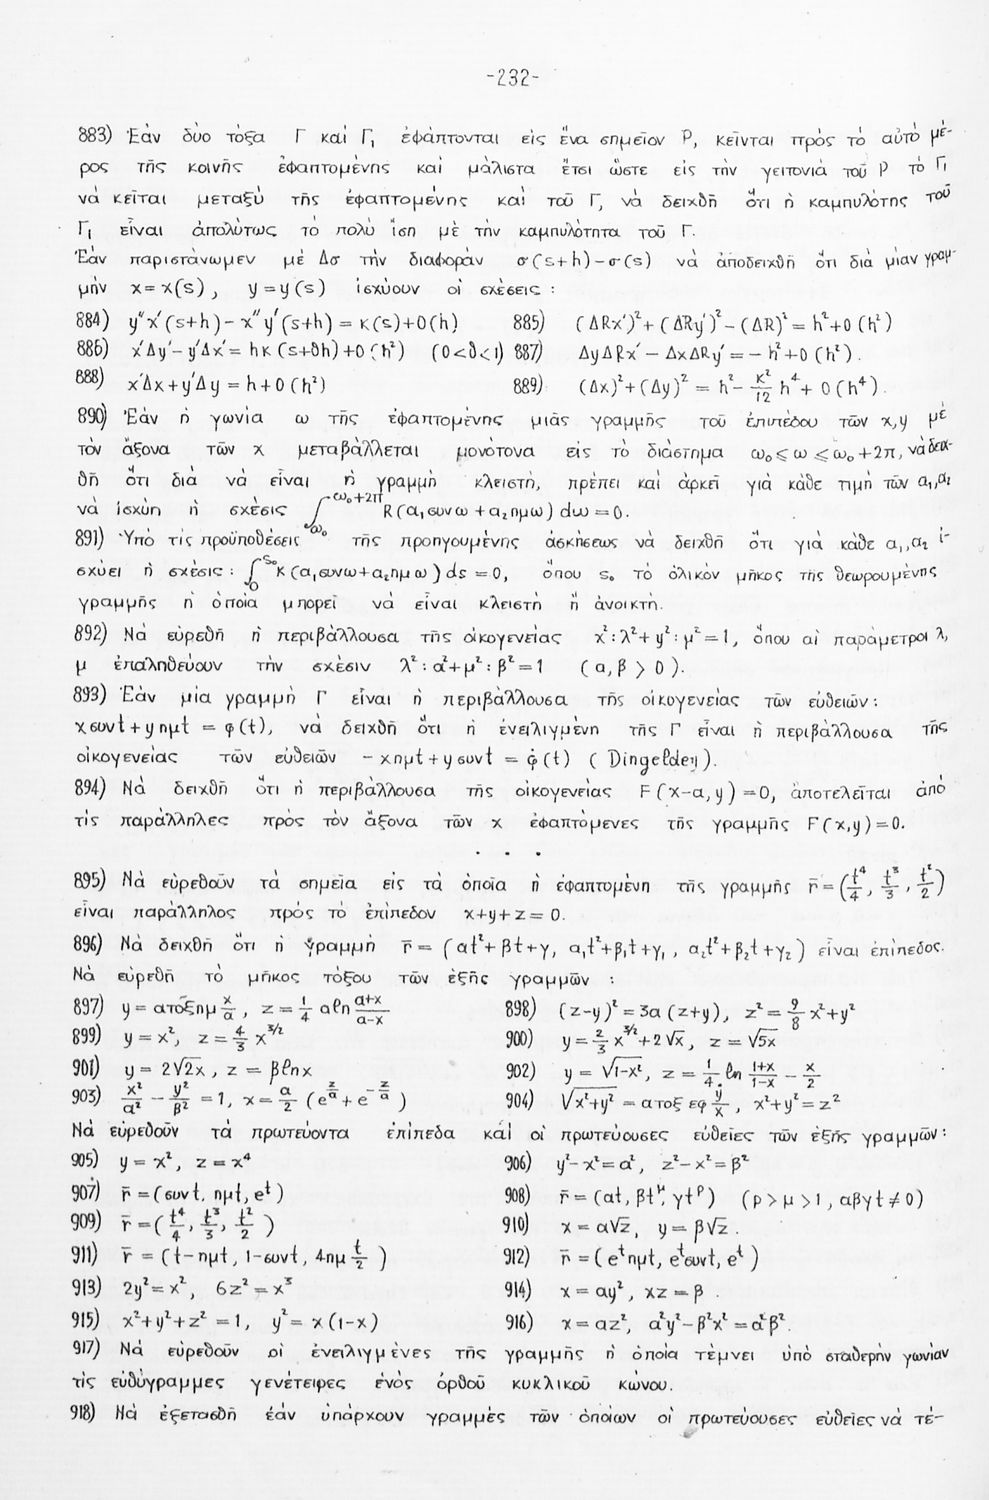 -232-
883) Ἐάν δύο τόξα Γ καί Γ₁ ἐφάπτονται εἰς ἕνα σημεῖον P, κεῖνται πρός τό αὐτό μέ-
ρος τῆς κοινῆς ἐφαπτομένης καί μάλιστα ἔτσι ὥστε εἰς τήν γειτονιά τοῦ P τό Γ₁
νά κεῖται μεταξύ τῆς ἐφαπτομένης καί τοῦ Γ, νά δειχθῆ ὅτι ἡ καμπυλότης τοῦ
Γ₁ εἶναι ἀπολύτως τό πολύ ἴση μέ τήν καμπυλότητα τοῦ Γ.
Ἐάν παριστάνωμεν μέ Δσ τήν διαφοράν σ(s+h)-σ(s) νά ἀποδειχθῆ ὅτι διά μίαν γραμ-
μήν x=x(s), y=y(s) ἰσχύουν οἱ σχέσεις :
884) y″x′(s+h)-x″y′(s+h)=κ(s)+0(h) 885) (ΔRx′)²+(ΔRy′)²-(ΔR)²=h²+0(h²)
886) x′Δy′-y′Δx′=hκ(s+θh)+0(h²) (0<θ<1) 887) ΔyΔRx′-ΔxΔRy′=-h²+0(h²).
888) x′Δx+y′Δy=h+0(h²) 889) (Δx)²+(Δy)²=h²-κ²/12 h⁴+0(h⁴).
890) Ἐάν ἡ γωνία ω τῆς ἐφαπτομένης μιᾶς γραμμῆς τοῦ ἐπιπέδου τῶν x,y μέ
τόν ἄξονα τῶν x μεταβάλλεται μονότονα εἰς τό διάστημα ω₀≤ω≤ω₀+2π, νά δειχ-
θῆ ὅτι διά νά εἶναι ἡ γραμμή κλειστή, πρέπει καί ἀρκεῖ γιά κάθε τιμή τῶν α₁,α₂
νά ἰσχύη ἡ σχέσις ∫_{ω₀}^{ω₀+2π} R(α₁συνω+α₂ημω)dω=0.
891) Ὑπό τίς προϋποθέσεις τῆς προηγουμένης ἀσκήσεως νά δειχθῆ ὅτι γιά κάθε α₁,α₂ ἰ-
σχύει ἡ σχέσις: ∫₀^{s₀} κ(α₁συνω+α₂ημω)ds=0, ὅπου s₀ τό ὁλικόν μῆκος τῆς θεωρουμένης
γραμμῆς ἡ ὁποία μπορεῖ νά εἶναι κλειστή ἤ ἀνοικτή.
892) Νά εὑρεθῆ ἡ περιβάλλουσα τῆς οἰκογενείας x²:λ²+y²:μ²=1, ὅπου αἱ παράμετροι λ,
μ ἐπαληθεύουν τήν σχέσιν λ²:α²+μ²:β²=1 (α,β>0).
893) Ἐάν μία γραμμή Γ εἶναι ἡ περιβάλλουσα τῆς οἰκογενείας τῶν εὐθειῶν:
xσυνt+yημt=φ(t), νά δειχθῆ ὅτι ἡ ἐνειλιγμένη τῆς Γ εἶναι ἡ περιβάλλουσα τῆς
οἰκογενείας τῶν εὐθειῶν -xημt+yσυνt=φ̇(t) (Dingeldey).
894) Νά δειχθῆ ὅτι ἡ περιβάλλουσα τῆς οἰκογενείας F(x-α,y)=0, ἀποτελεῖται ἀπό
τίς παράλληλες πρός τόν ἄξονα τῶν x ἐφαπτόμενες τῆς γραμμῆς F(x,y)=0.
. . .
895) Νά εὑρεθοῦν τά σημεῖα εἰς τά ὁποῖα ἡ ἐφαπτομένη τῆς γραμμῆς r̄=(t⁴/4, t³/3, t²/2)
εἶναι παράλληλος πρός τό ἐπίπεδον x+y+z=0.
896) Νά δειχθῆ ὅτι ἡ γραμμή r̄=(αt²+βt+γ, α₁t²+β₁t+γ₁, α₂t²+β₂t+γ₂) εἶναι ἐπίπεδος.
Νά εὑρεθῆ τό μῆκος τόξου τῶν ἑξῆς γραμμῶν :
897) y=ατοξημ x/α, z=1/4 αℓn (α+x)/(α-x) 898) (z-y)²=3α(z+y), z²=9/8 x²+y²
899) y=x², z=4/3 x^{3/2} 900) y=2/3 x^{3/2}+2√x, z=√5x
901) y=2√2x, z=βℓnx 902) y=√1-x², z=1/4 ℓn (1+x)/(1-x) - x/2
903) x²/α² - y²/β²=1, x=α/2 (e^{z/α}+e^{-z/α}) 904) √x²+y²=ατοξ εφ y/x, x²+y²=z²
Νά εὑρεθοῦν τά πρωτεύοντα ἐπίπεδα καί οἱ πρωτεύουσες εὐθεῖες τῶν ἑξῆς γραμμῶν:
905) y=x², z=x⁴ 906) y²-x²=α², z²-x²=β²
907) r̄=(συνt, ημt, e^t) 908) r̄=(αt, βt^μ, γt^ρ) (ρ>μ>1, αβγt≠0)
909) r̄=(t⁴/4, t³/3, t²/2) 910) x=α√z, y=β√z.
911) r̄=(t-ημt, 1-συνt, 4ημ t/2) 912) r̄=(e^tημt, e^tσυνt, e^t)
913) 2y²=x², 6z²=x³ 914) x=αy², xz=β.
915) x²+y²+z²=1, y²=x(1-x) 916) x=αz², α²y²-β²x²=α²β².
917) Νά εὑρεθοῦν οἱ ἐνειλιγμένες τῆς γραμμῆς ἡ ὁποία τέμνει ὑπό σταθερήν γωνίαν
τίς εὐθύγραμμες γενέτειρες ἑνός ὀρθοῦ κυκλικοῦ κώνου.
918) Νά ἐξετασθῆ ἐάν ὑπάρχουν γραμμές τῶν ὁποίων οἱ πρωτεύουσες εὐθεῖες νά τέ-